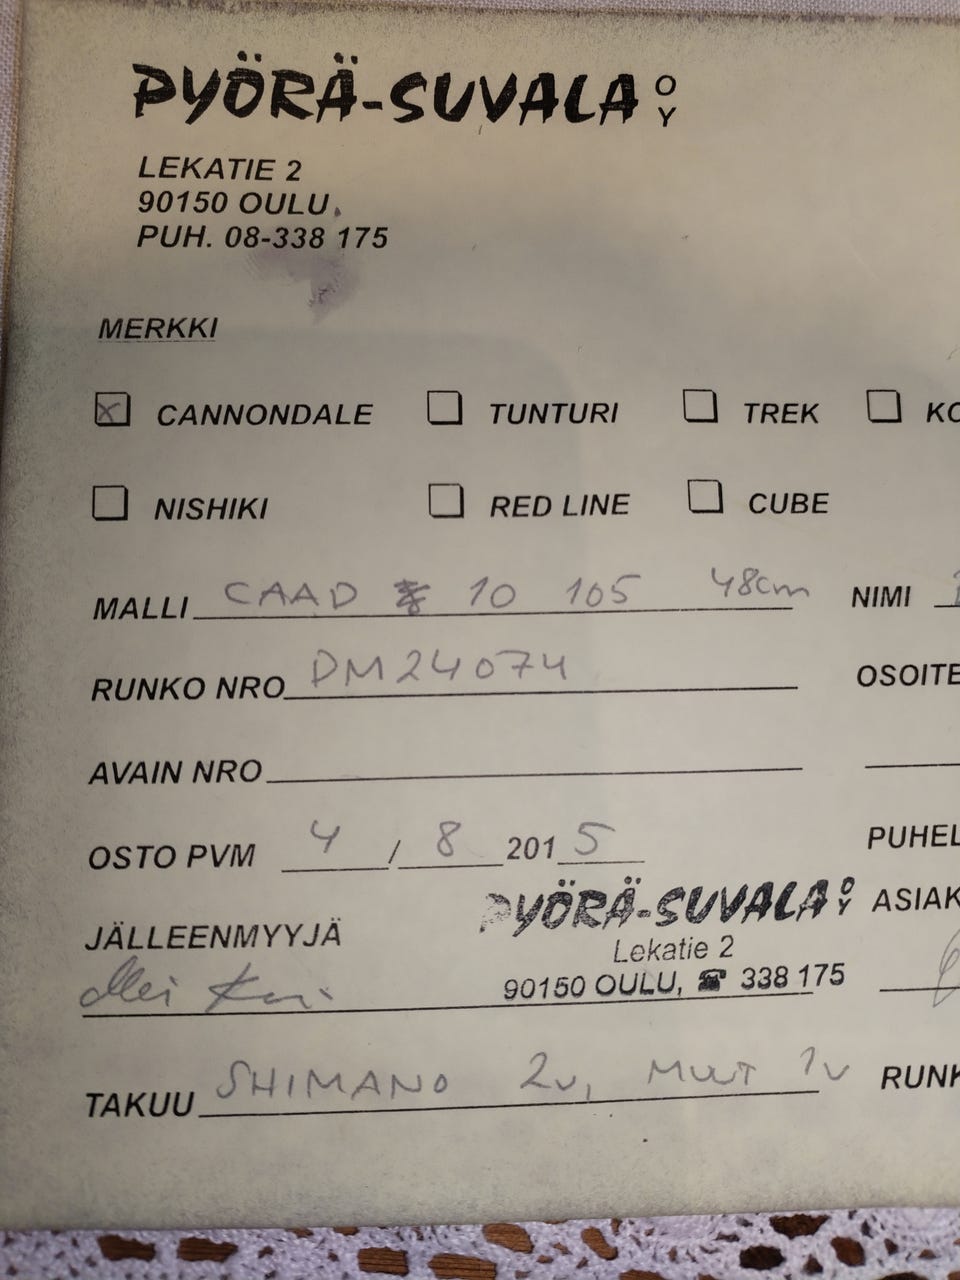 PYÖRÄ-SUVALA OY
LEKATIE 2
90150 OULU
PUH. 08-338 175
MERKKI
CANNONDALE TUNTURI TREK KO
NISHIKI RED LINE CUBE
MALLI CAAD 10 105 48cm NIMI
RUNKO NRO DM24074 OSOITE
AVAIN NRO
OSTO PVM 4 / 8 2015 PUHEL
PYÖRÄ-SUVALA OY ASIAK
JÄLLEENMYYJÄ Lekatie 2
90150 OULU, ☎ 338 175
TAKUU SHIMANO 2v, MUUT 1v RUNK